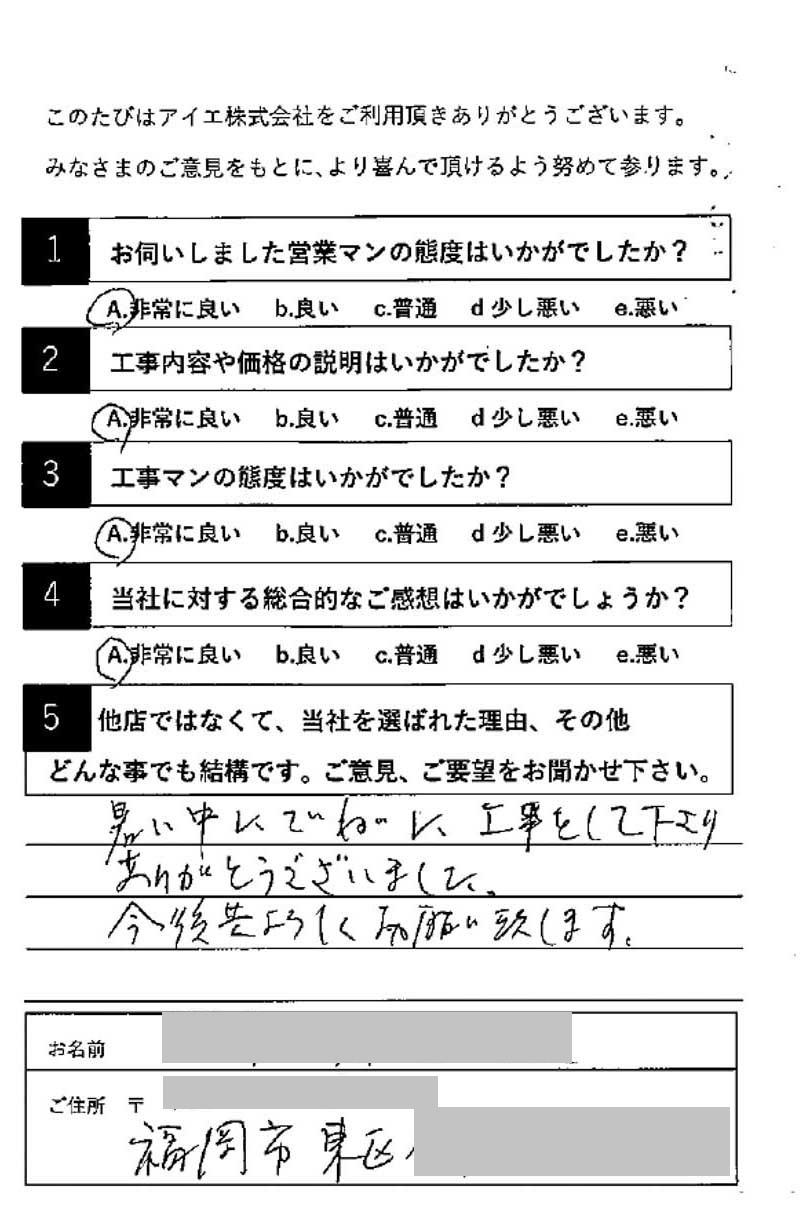 このたびはアイエ株式会社をご利用頂きありがとうございます。
みなさまのご意見をもとに、より喜んで頂けるよう努めて参ります。
1 お伺いしました営業マンの態度はいかがでしたか？
A.非常に良い b.良い c.普通 d 少し悪い e.悪い
2 工事内容や価格の説明はいかがでしたか？
A.非常に良い b.良い c.普通 d 少し悪い e.悪い
3 工事マンの態度はいかがでしたか？
A.非常に良い b.良い c.普通 d 少し悪い e.悪い
4 当社に対する総合的なご感想はいかがでしょうか？
A.非常に良い b.良い c.普通 d 少し悪い e.悪い
5 他店ではなくて、当社を選ばれた理由、その他
どんな事でも結構です。ご意見、ご要望をお聞かせ下さい。
暑い中ていねいに、工事をして下さり
ありがとうございました。
今後共よろしくお願い致します。
お名前
ご住所 〒
福岡市東区